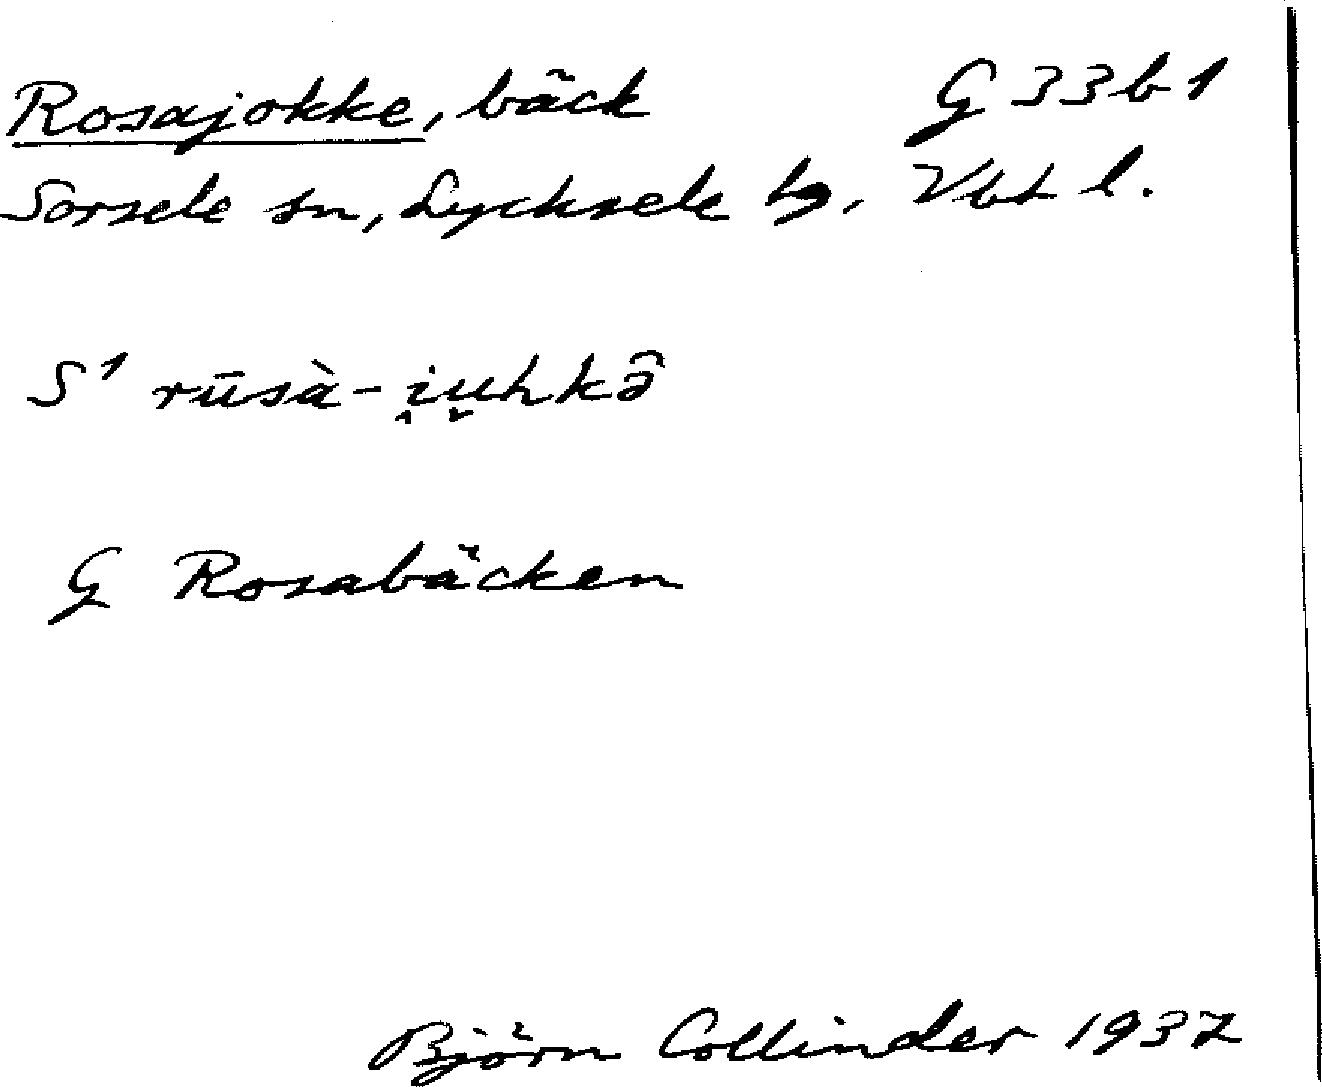 Rosajokke, bäck G 33 b 1
Sorsele sn, Lycksele lg. Vbt l.
S¹ rūsà-i̭u̬hkə̑
G Rosabäcken
Björn Collinder 1937